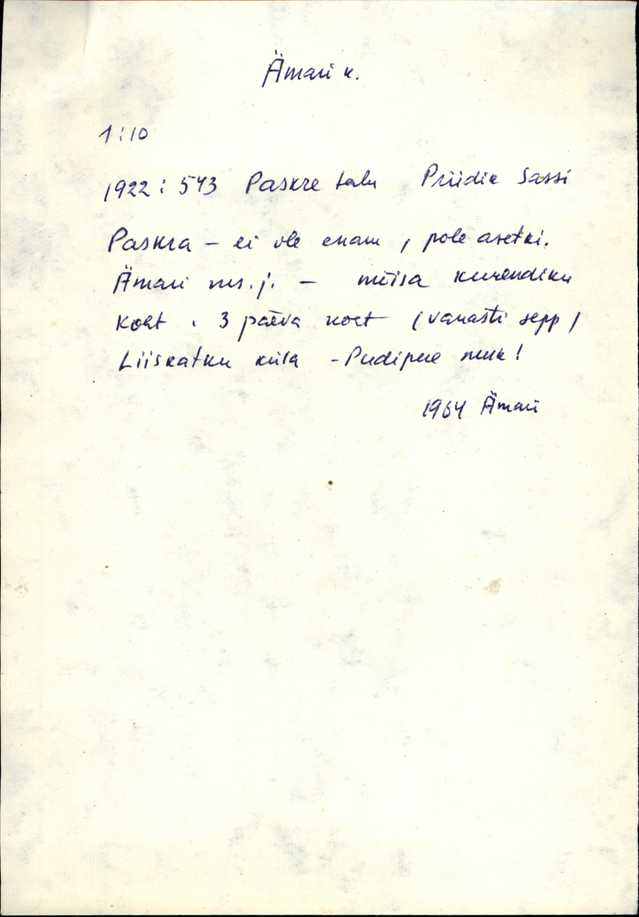 Ämari k.
1:10
1922: 543 Paskre talu Priidik Sassi
Paskra – ei ole enam, pole asetki.
Ämari ms. j. – mõisa kurendiku
koht. 3 päeva koht (vanasti sepp)
Liiskatku küla – Pudipere
1964 Ämari